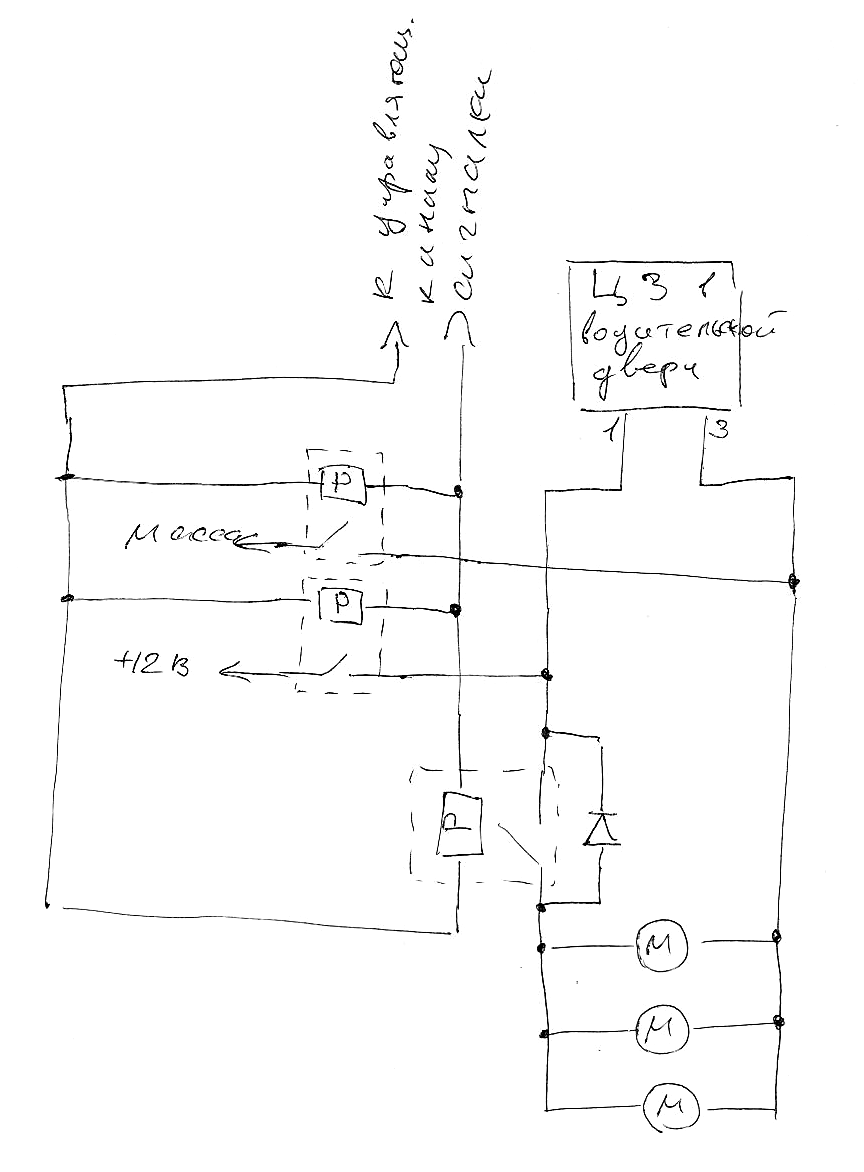 к управляющ.
каналу
сигналки
ЦЗ в
водительской
двери
1
3
Р
Масса
Р
+12 В
Р
М
М
М